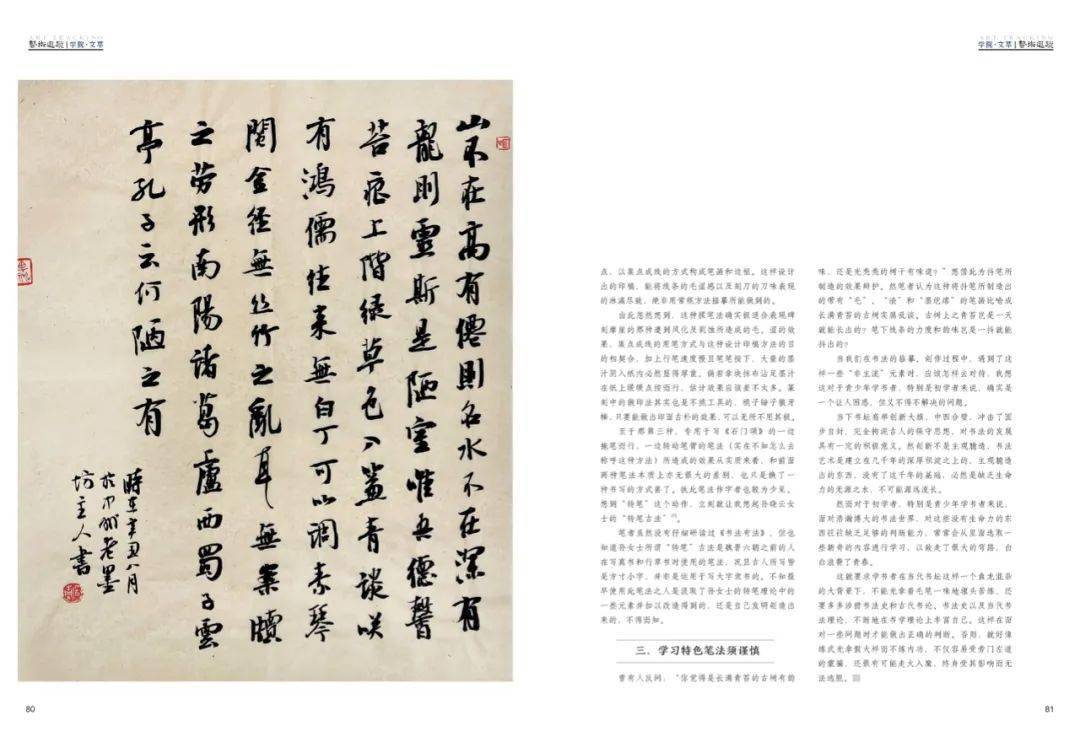 ART TRACKING
藝術追蹤 | 学院·文萃
ART TRACKING
学院·文萃 | 藝術追蹤
山不在高有僊則名水不在深有
龍則靈斯是陋室唯吾德馨
苔痕上階緑草色入簾青談咲
有鴻儒往来無白丁可以調素琴
閱金經無丝竹之亂耳無案牘
之劳形南陽諸葛廬西蜀子雲
亭孔子云何陋之有
時在辛丑八月
於中州老墨
坊主人書
点、以集点成线的方式构成笔画和边框。这样设计
出的印稿，能将线条的毛涩感以及刻刀的刀味表现
的淋漓尽致，绝非常规方法描摹所能做到的。
由此忽然想到，这种摸笔法确实很适合表现碑
刻摩崖的那种遭到风化及剥蚀所造成的毛、涩的效
果，集点成线的用笔方式与这种设计印稿方法的目
的相契合，加上行笔速度慢且笔笔按下，大量的墨
汁洇入纸内必然显得厚重。倘若拿块抹布沾足墨汁
在纸上缓缓点按而行，估计效果应该差不太多。篆
刻中的做印法其实也是不择工具的，梳子锤子徽牙
棒，只要能做出印面古朴的效果，可以无所不用其极。
至于那第三种，专用于写《石门颂》的一边
拖笔而行、一边转动笔管的笔法（实在不知怎么去
称呼这种方法）所造成的效果从实质来看，和前面
两种笔法本质上亦无很大的差别，也只是换了一
种书写的方式罢了。彼此笔法作字者也较为少见。
想到“转笔”这个动作，立刻就让我想起孙晓云女
士的“转笔古法”
笔者虽然没有仔细研读过《书法有法》，但也
知道孙女士所谓“转笔”古法是魏晋六朝之前的人
在写真书和行草书时使用的笔法，况且古人所写皆
是方寸小字，并非是运用于写大字隶书的。不知最
早使用此笔法之人是汲取了孙女士的转笔理论中的
一些元素并加以改造得到的，还是自己发明创造出
来的，不得而知。
三、学习特色笔法须谨慎
曾有人反问，“你觉得是长满青苔的古树有韵
味，还是光秃秃的树干有味道？”想借此为抖笔所
制造的效果辩护。然笔者认为这种将抖笔所制造出
的带有“毛”、“涩”和“墨疙瘩”的笔画比喻成
长满青苔的古树实属乱谈。古树上之青苔岂是一天
就能长出的？笔下线条的力度和韵味岂是一抖就能
抖出的？
当我们在书法的临摹、创作过程中，遇到了这
样一些“非主流”元素时，应该怎样去对待，我想
这对于青少年学书者，特别是初学者来说，确实是
一个让人困惑，但又不得不解决的问题。
当下书坛高举创新大旗，中西合璧，冲击了固
步自封、完全拘泥古人的保守思想，对书法的发展
具有一定的积极意义。然创新不是主观臆造，书法
艺术是建立在几千年的深厚积淀之上的，主观臆造
出的东西，没有了这千年的基础，必然是缺乏生命
力的无源之水，不可能源远流长。
然而对于初学者，特别是青少年学书者来说，
面对浩瀚博大的书法世界，对这些没有生命力的东
西往往缺乏足够的判断能力，常常会从里面选取一
些新奇的内容进行学习，以致走了很大的弯路，白
白浪费了青春。
这就要求学书者在当代书坛这样一个鱼龙混杂
的大背景下，不能光拿着毛笔一味地埋头苦练，还
要多多涉猎书法史和古代书论、书法史以及当代书
法理论，不断地在书学理论上丰富自己。这样在面
对一些问题时才能做出正确的判断。否则，就好像
练武光拿假大样而不练内功，不仅容易受旁门左道
的蒙骗，还很有可能走火入魔，终身受其影响而无
法逃脱。
80
81